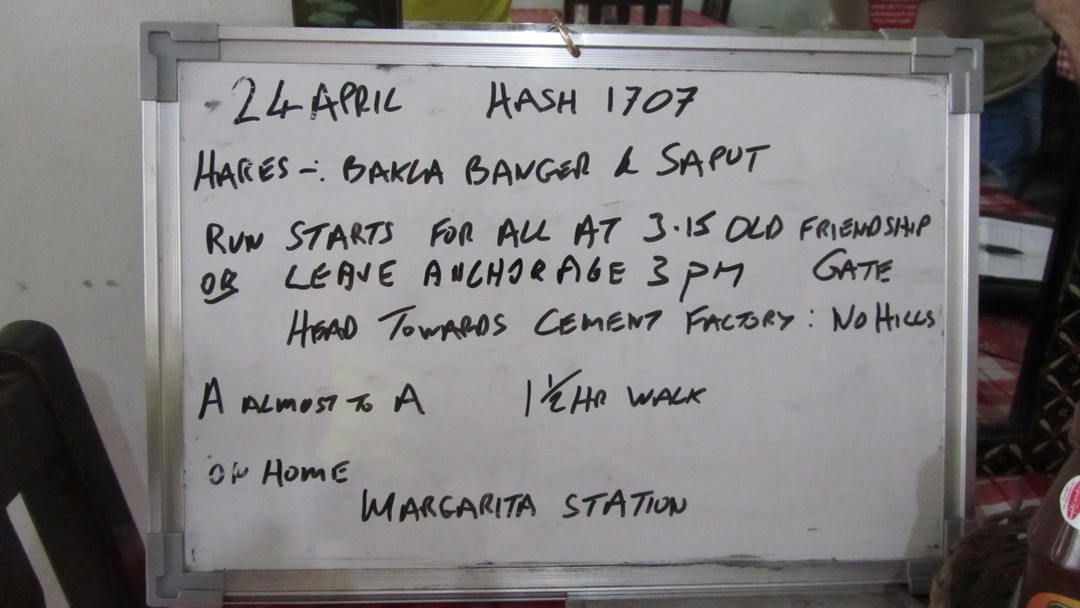 24 APRIL HASH 1707
HARES -: BAKLA BANGER & SAPUT
RUN STARTS FOR ALL AT 3.15 OLD FRIENDSHIP
OR LEAVE ANCHORAGE 3 PM GATE
HEAD TOWARDS CEMENT FACTORY : NO HILLS
A ALMOST TO A 1 1/2 HR WALK
ON HOME
MARGARITA STATION